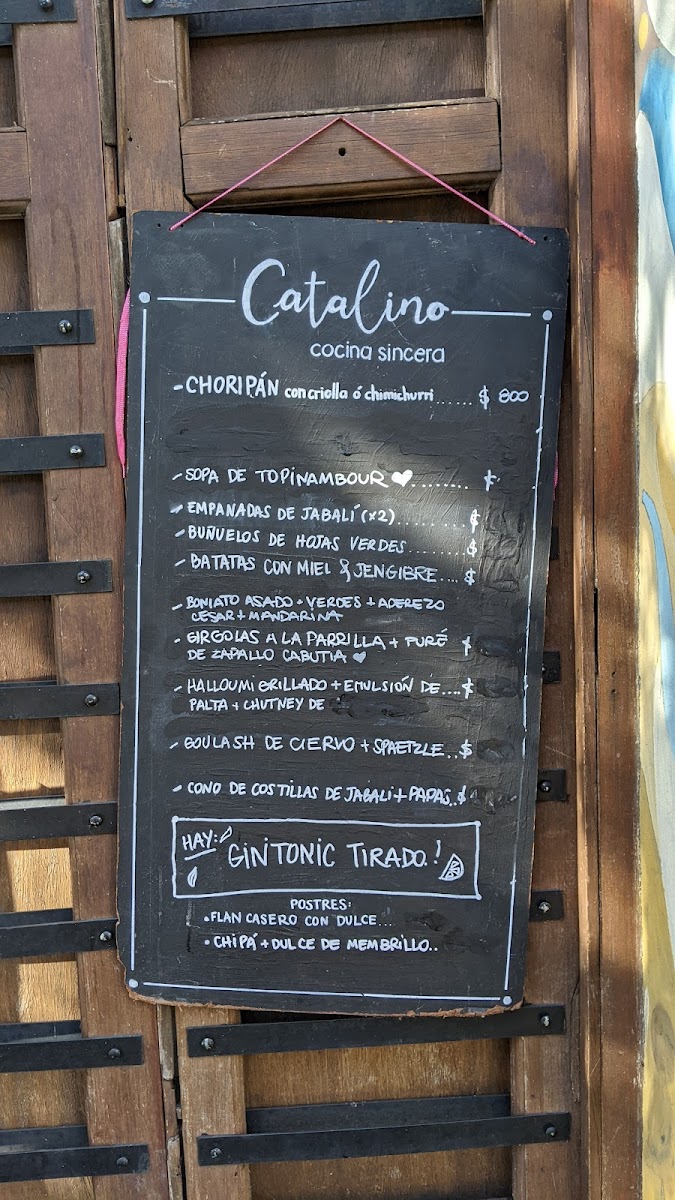 Catalino
cocina sincera
- CHORIPÁN con criolla ó chimichurri...... $ 800
- SOPA DE TOPINAMBOUR ♥......... $
- EMPANADAS DE JABALÍ (x2)......... $
- BUÑUELOS DE HOJAS VERDES......... $
- BATATAS CON MIEL & JENGIBRE.... $
- BONIATO ASADO + VERDES + ADEREZO
CESAR + MANDARINA
- GIRGOLAS A LA PARRILLA + PURÉ $
DE ZAPALLO CABUTIA ♥
- HALLOUMI GRILLADO + EMULSIÓN DE.... $
PALTA + CHUTNEY DE
- GOULASH DE CIERVO + SPAETZLE.. $
- CONO DE COSTILLAS DE JABALÍ + PAPAS.. $
HAY:
GINTONIC TIRADO.!
POSTRES:
• FLAN CASERO CON DULCE...
• CHIPÁ + DULCE DE MEMBRILLO..